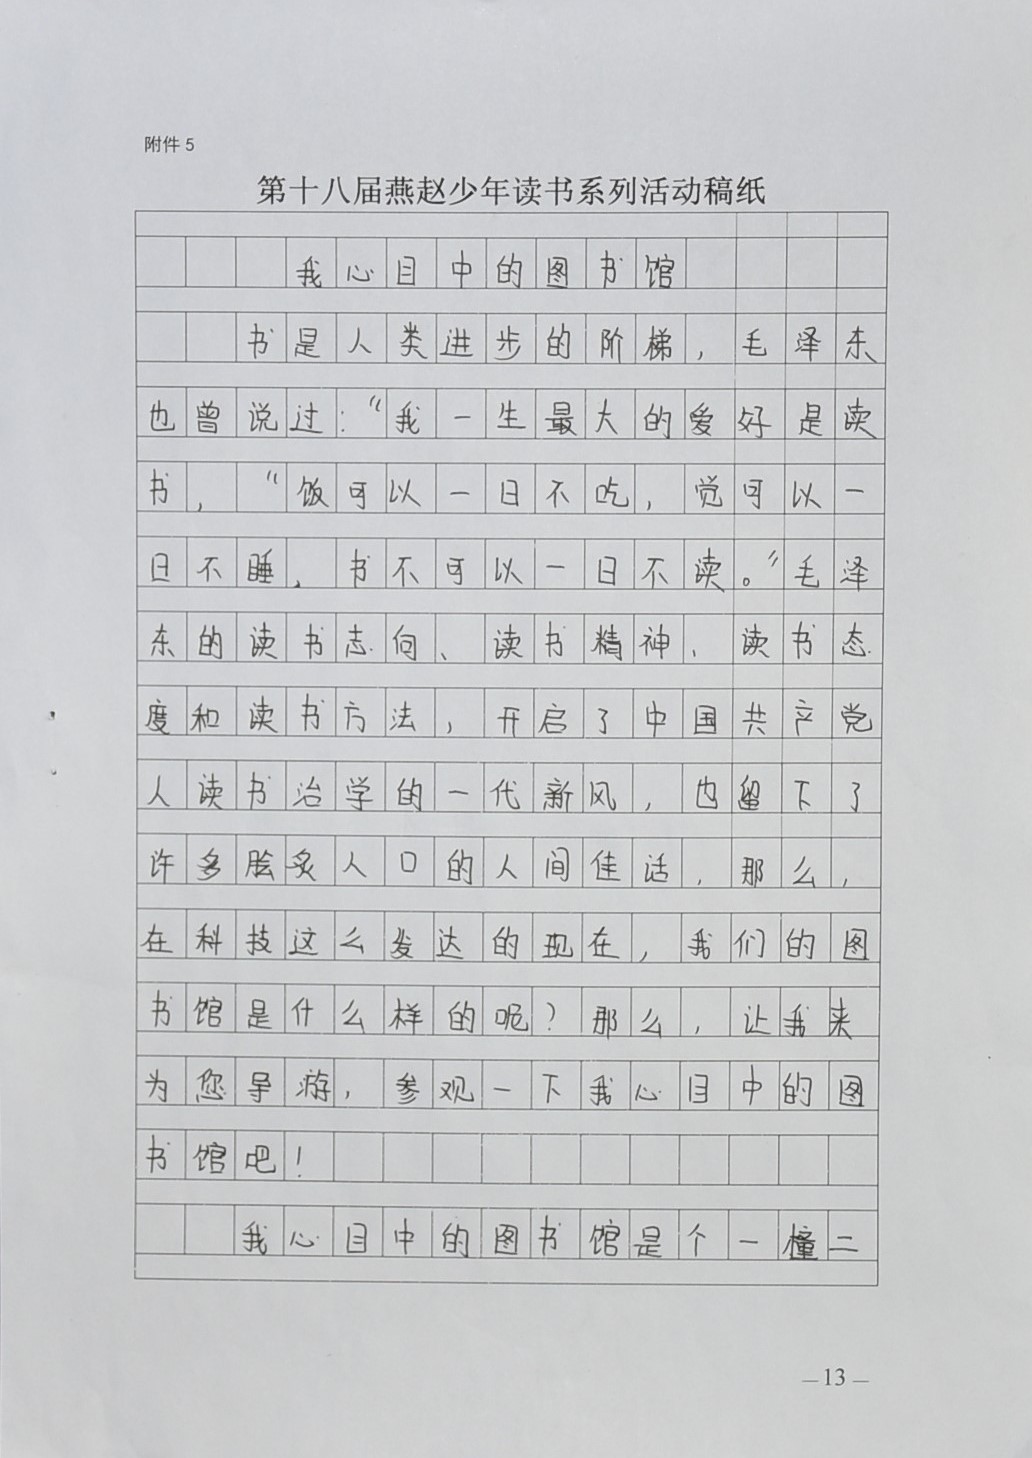 附件 5
第十八届燕赵少年读书系列活动稿纸
我心目中的图书馆
书是人类进步的阶梯，毛泽东
也曾说过：“我一生最大的爱好是读
书，“饭可以一日不吃，觉可以一
日不睡，书不可以一日不读。”毛泽
东的读书志向、读书精神、读书态
度和读书方法，开启了中国共产党
人读书治学的一代新风，也留下了
许多脍炙人口的人间佳话，那么，
在科技这么发达的现在，我们的图
书馆是什么样的呢？那么，让我来
为您导游，参观一下我心目中的图
书馆吧！
我心目中的图书馆是个一橦二
—13—